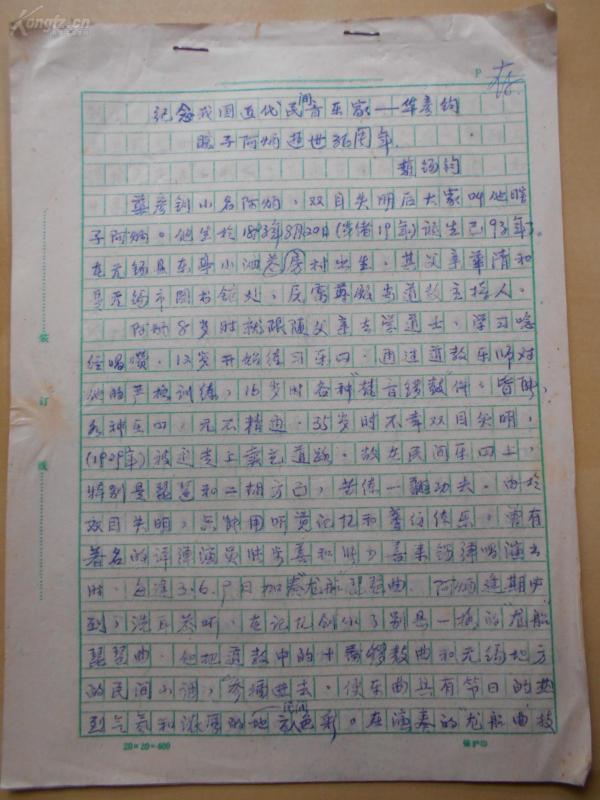 Kongfz.cn
P
存
纪念我国近代民间音乐家——华彦钧
瞎子阿炳逝世36周年
华彦钧小名阿炳,双目失明后大家叫他瞎
子阿炳。他生於1893年8月20日(光绪19年)诞生已93年。
在无锡县东亭小泗巷房村出生,其父亲华清和
是无锡市图书馆处,雷尊殿当道教主持人。
阿炳8岁时就跟随父亲去学道士,学习唸
经唱赞。12岁开始练习乐曲,通过道教乐师对
他的严格训练,16岁时各种"锣鼓"件,皆
各种乐曲,无不精通。35岁时不幸双目失明,
(1929年)被迫走上卖艺道路。故在民间乐曲上,
特别是琵琶和二胡方面,苦练一翻功夫。由於
双目失明,只能用听觉记忆和
著名的评弹演员
时,每逢3.6.9日加奏"龙船"琵琶曲。阿炳逢期必
到,洗耳恭听,在记忆创作了别具一格的"龙船"
琵琶曲。他把道教中的十番锣鼓曲和无锡地方
的民间小调,"参插进去,使乐曲具有节日的热
烈气氛和浓厚的地方民间色彩。在演奏的龙船曲技
装
订
线
20×20=400